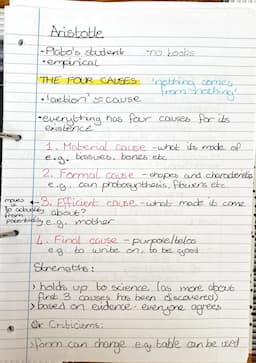 Aristotle
•Plato's student no books
•empirical
THE FOUR CAUSES 'nothing comes
from nothing'
•'aetion' = cause
•everything has four causes for its
existence
1. Material cause - what its made of
e.g. tissues, bones etc
2. Formal cause - shapes and characteristics
e.g. can photosynthesis, flowers etc
3. Efficient cause - what made it come
about?
e.g. mother
moves
to actuality
from
potentiality
4. Final cause - purpose/telos
e.g. to write on, to be good
Strengths:
> holds up to science (as more about
first 3 causes has been discovered)
> based on evidence - everyone agrees
Criticisms:
>form can change e.g. table can be used